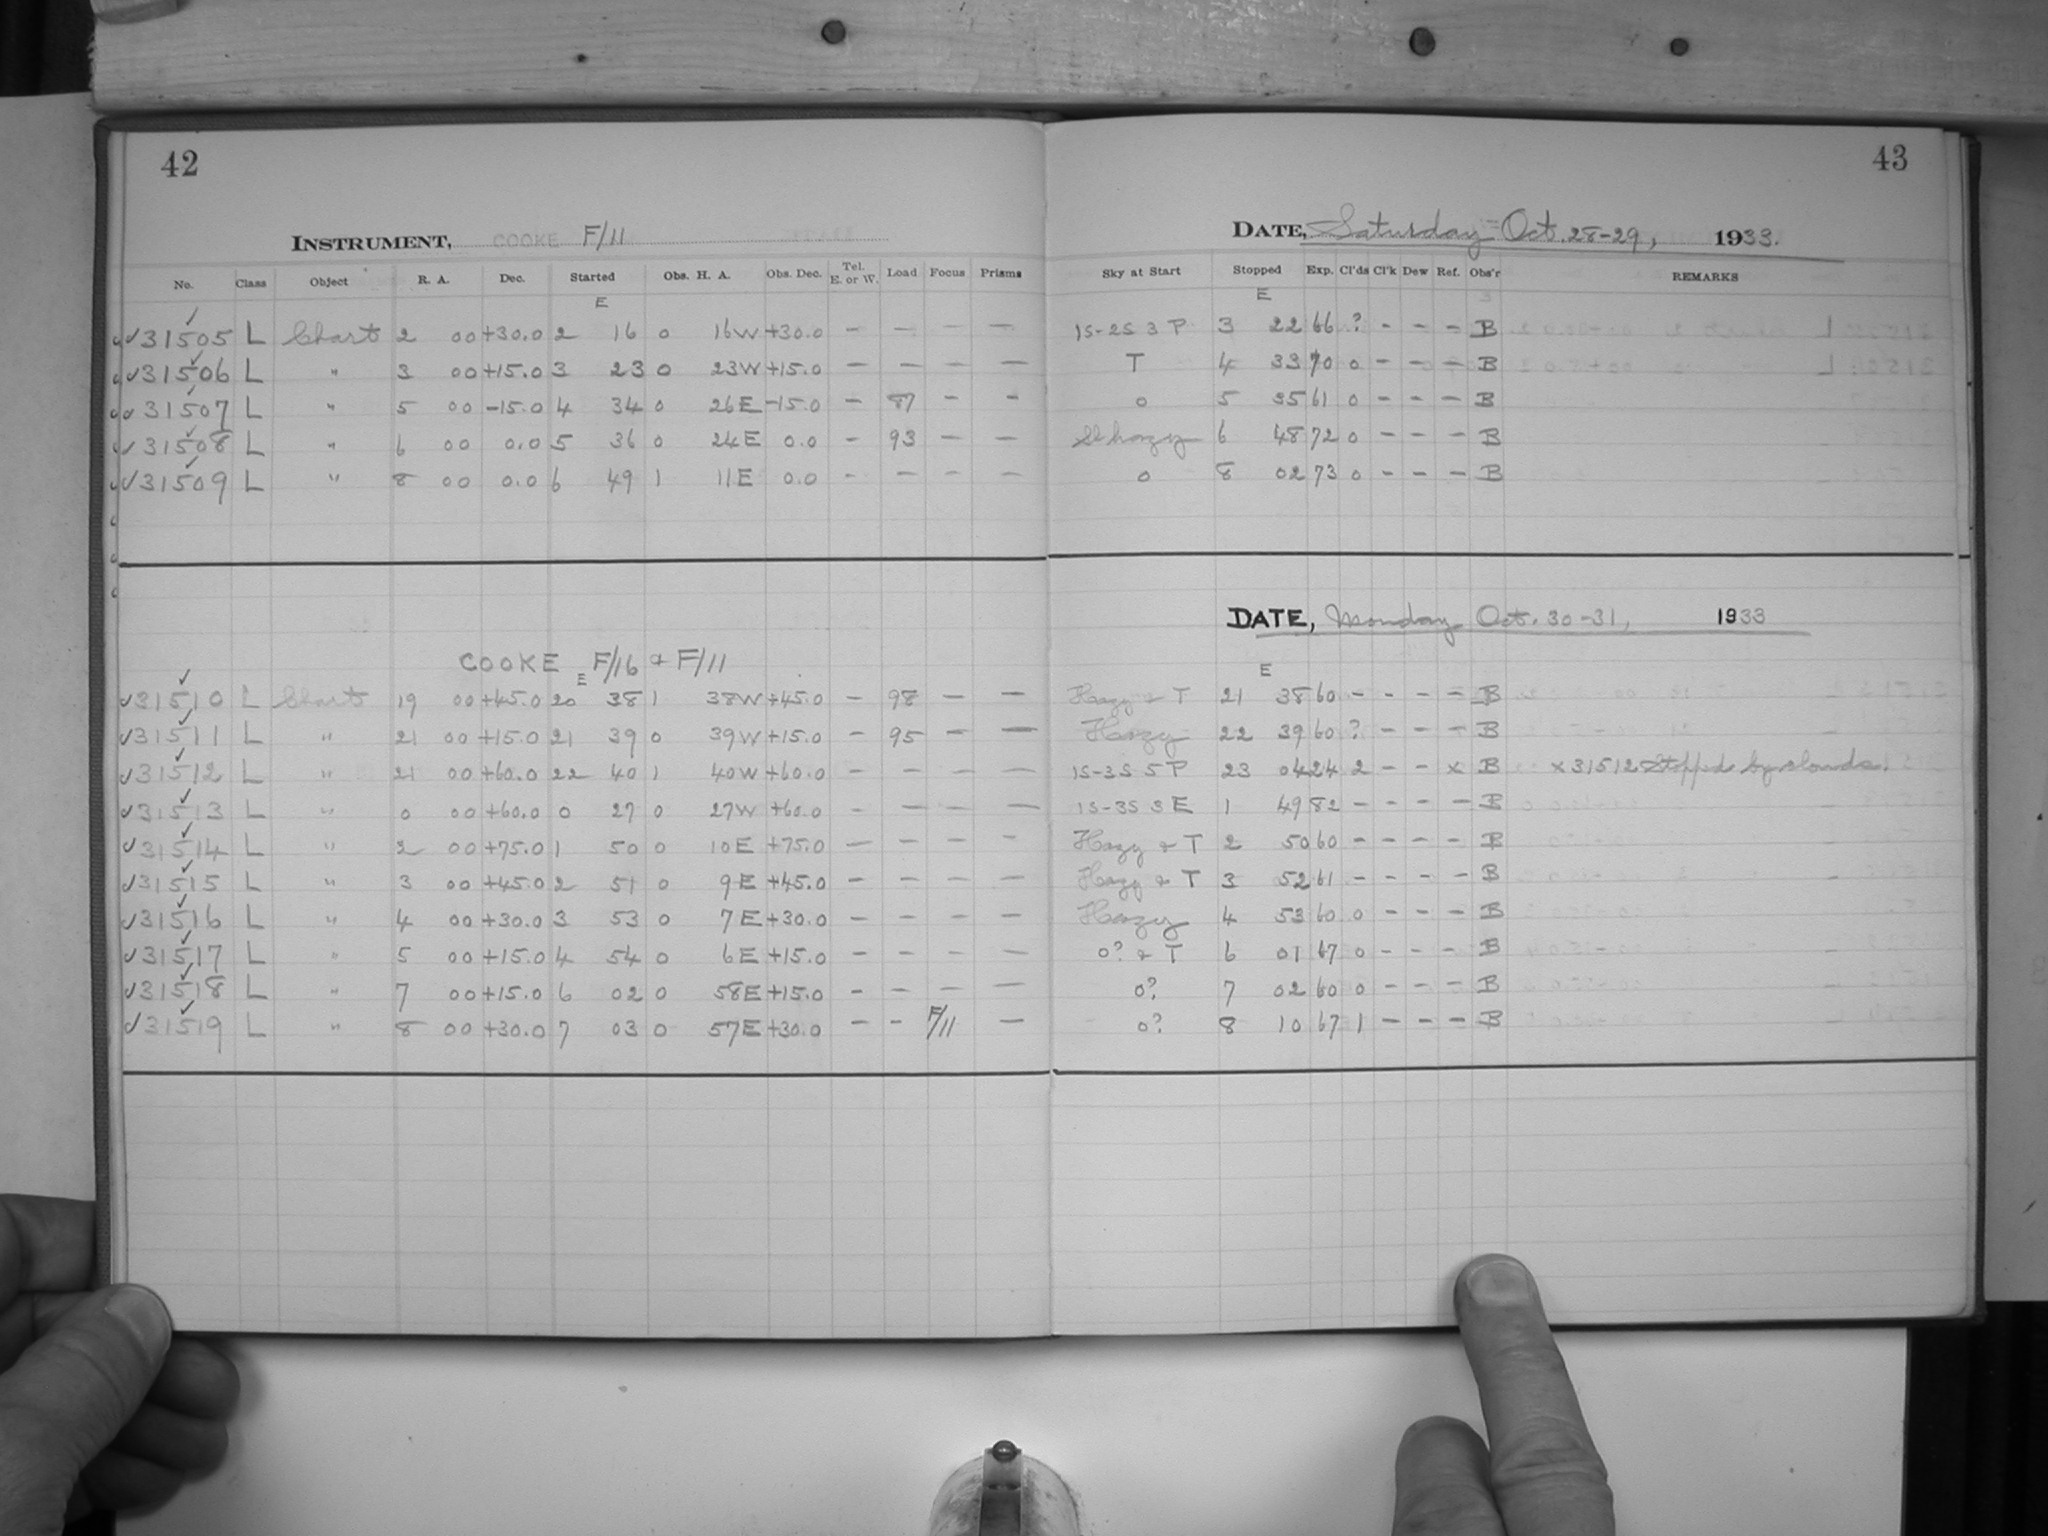 42
INSTRUMENT, COOKE F/11
No. Class Object R. A. Dec. Started Obs. H. A. Obs. Dec. Tel. E. or W. Load Focus Prisms
E
✓31505 L Chart 2 00 +30.0 2 16 0 16W +30.0 – – – –
✓31506 L " 3 00 +15.0 3 23 0 23W +15.0 – – – –
✓31507 L " 5 00 -15.0 4 34 0 26E -15.0 – 87 – –
✓31508 L " 6 00 0.0 5 36 0 24E 0.0 – 93 – –
✓31509 L " 8 00 0.0 6 49 1 11E 0.0 – – – –
COOKE F/16 & F/11
E
✓31510 L Chart 19 00 +45.0 20 38 1 38W +45.0 – 98 – –
✓31511 L " 21 00 +15.0 21 39 0 39W +15.0 – 95 – –
✓31512 L " 21 00 +60.0 22 40 1 40W +60.0 – – – –
✓31513 L " 0 00 +60.0 0 27 0 27W +60.0 – – – –
✓31514 L " 2 00 +75.0 1 50 0 10E +75.0 – – – –
✓31515 L " 3 00 +45.0 2 51 0 9E +45.0 – – – –
✓31516 L " 4 00 +30.0 3 53 0 7E +30.0 – – – –
✓31517 L " 5 00 +15.0 4 54 0 6E +15.0 – – – –
✓31518 L " 7 00 +15.0 6 02 0 58E +15.0 – – – –
✓31519 L " 8 00 +30.0 7 03 0 57E +30.0 – – F/11 –
43
DATE, Saturday Oct. 28-29, 1933.
Sky at Start Stopped Exp. Cl'ds Cl'k Dew Ref. Obs'r REMARKS
E
1S-2S 3 P 3 22 66 ? – – – B
T 4 33 70 0 – – – B
0 5 35 61 0 – – – B
Sl hazy 6 48 72 0 – – – B
0 8 02 73 0 – – – B
DATE, Monday Oct. 30-31, 1933
E
Hazy & T 21 38 60 – – – – B
Hazy 22 39 60 ? – – – B
1S-3S 5 P 23 04 24 2 – – x B x 31512 Stopped by clouds.
1S-3S 3 E 1 49 82 – – – – B
Hazy & T 2 50 60 – – – – B
Hazy & T 3 52 61 – – – – B
Hazy 4 53 60 0 – – – B
0? & T 6 01 67 0 – – – B
0? 7 02 60 0 – – – B
0? 8 10 67 1 – – – B